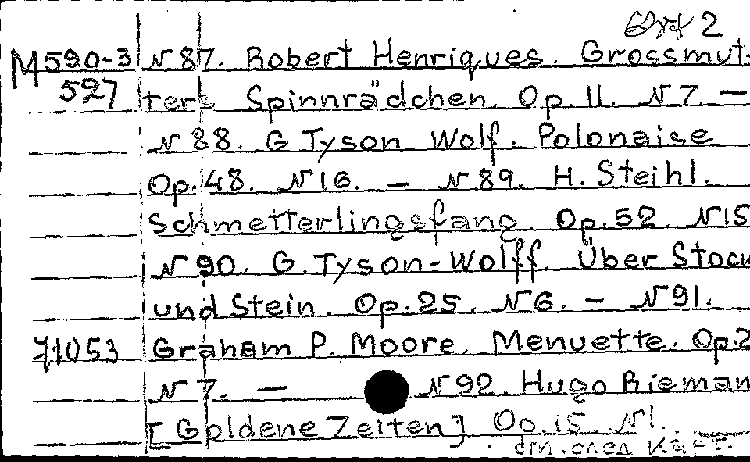 2
M590-3 N87. Robert Henriques. Grossmut-
527 ters Spinnrädchen. Op. 11. N7. —
N88. G Tyson Wolf. Polonaise
Op. 48. N16. — N89. H. Steihl.
Schmetterlingsfang. Op. 52. N15
N90. G. Tyson-Wolff. Über Stock
und Stein. Op. 25. N6. — N91.
71053 Graham P. Moore. Menuette. Op. 2
N7. — N92. Hugo Rieman
[Goldene Zeiten] Op. 15. N1.